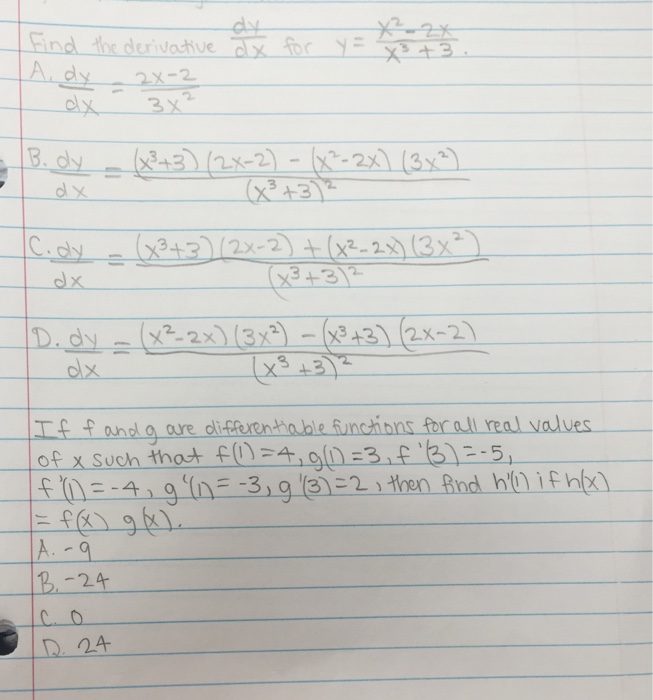 Find the derivative dy/dx for y = (x² - 2x)/(x³ + 3).
A. dy/dx = (2x-2)/(3x²)
B. dy/dx = ((x³+3)(2x-2) - (x²-2x)(3x²))/(x³+3)²
C. dy/dx = ((x³+3)(2x-2) + (x²-2x)(3x²))/(x³+3)²
D. dy/dx = ((x²-2x)(3x²) - (x³+3)(2x-2))/(x³+3)²
If f and g are differentiable functions for all real values
of x such that f(1)=4, g(1)=3, f'(3)=-5,
f'(1)=-4, g'(1)=-3, g'(3)=2, then find h'(1) if h(x)
= f(x) g(x).
A. -9
B. -24
C. 0
D. 24